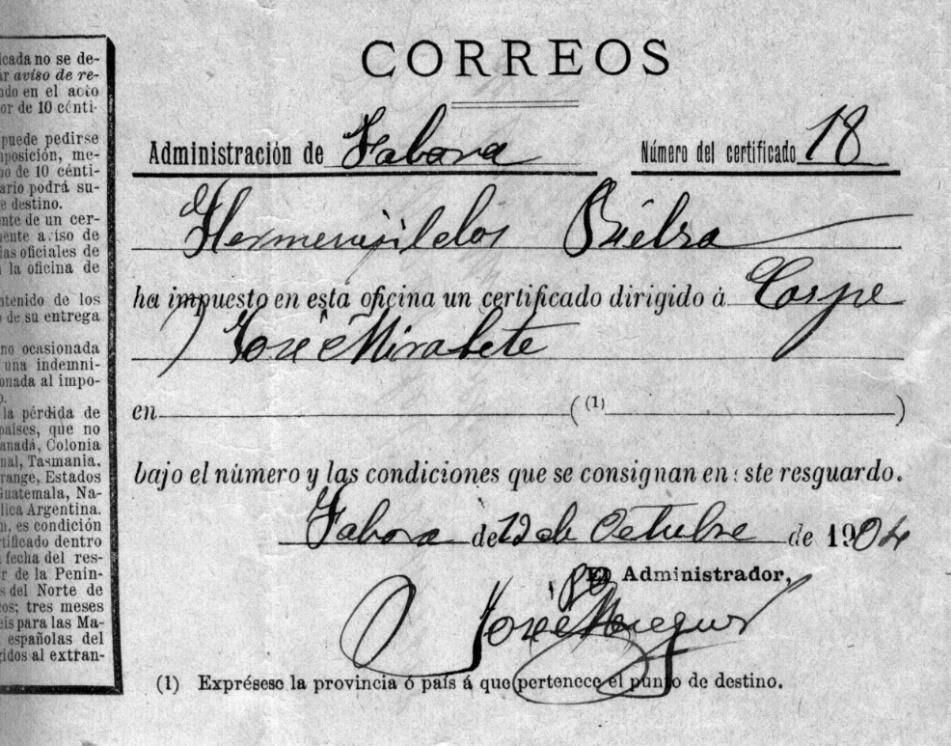 cada no se de-
ar aviso de re-
ndo en el acto
or de 10 cénti-
puede pedirse
posición, me-
o de 10 cénti-
ario podrá su-
e destino.
nte de un cer-
ente aviso de
ias oficiales de
la oficina de
ntenido de los
de su entrega
no ocasionada
una indemni-
onada al impo-
la pérdida de
países, que no
anadá, Colonia
nal, Tasmania,
range, Estados
Guatemala, Na-
lica Argentina.
n. es condición
rtificado dentro
fecha del res-
r de la Penín-
s del Norte de
os; tres meses
eis para las Ma-
españolas del
gidos al extran-
CORREOS
Administración de Fabara Número del certificado 18
D Hermenejildos Bielsa
ha impuesto en esta oficina un certificado dirigido á Caspe
José Mirabete
en ( (1) )
bajo el número y las condiciones que se consignan en ste resguardo.
Fabara de 12 de Octubre de 1904
El Administrador,
PO
José
(1) Exprésese la provincia ó país á que pertenece el punto de destino.